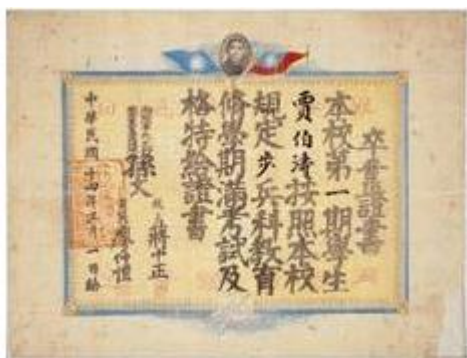 卒業證書
本校第一期學生
賈伯濤按照本校
規定步兵科教育
修學期滿考試及
格特給證書
孫文
校長 蔣中正
廖仲愷
中華民國十四年 月一日給